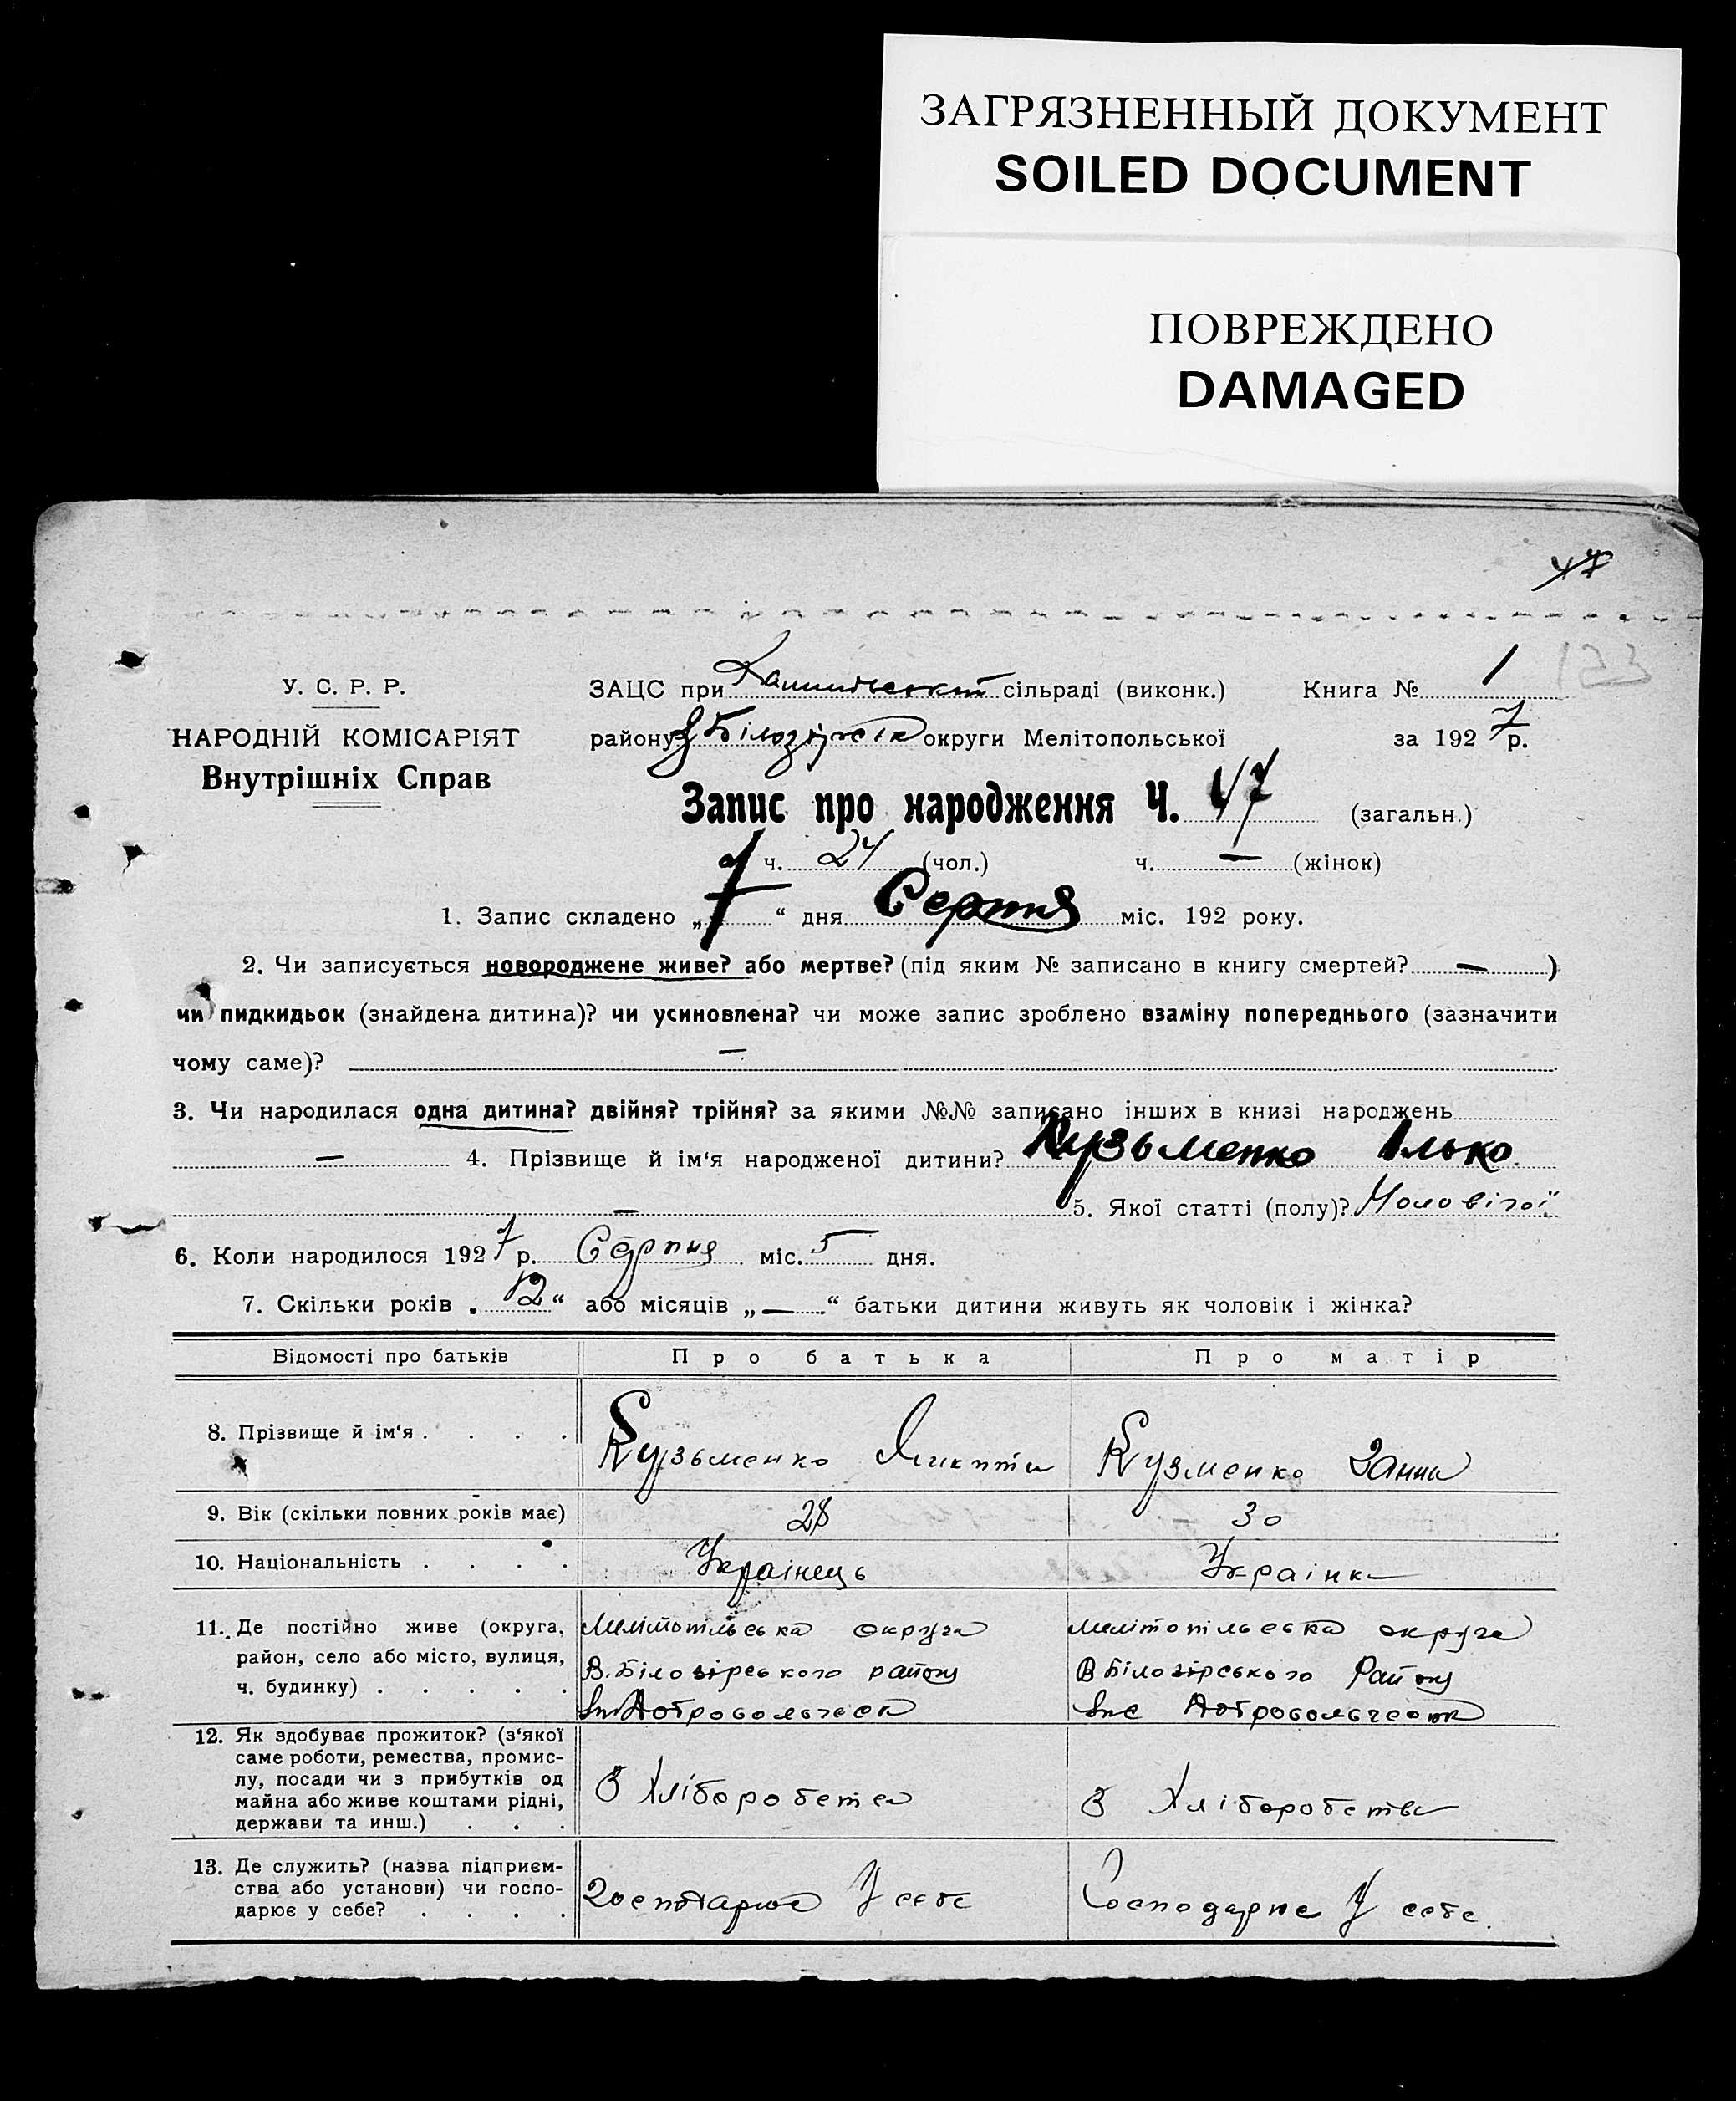 ЗАГРЯЗНЕННЫЙ ДОКУМЕНТ
SOILED DOCUMENT
ПОВРЕЖДЕНО
DAMAGED
47
123
У. С. Р. Р.
НАРОДНІЙ КОМІСАРІЯТ
Внутрішніх Справ
ЗАЦС при сільраді (виконк.) Книга № 1
району округи Мелітопольської за 1927 р.
Запис про народження Ч. 47 (загальн.)
ч. 24 (чол.) ч. — (жінок)
1. Запис складено „7“ дня Серпня міс. 192 року.
2. Чи записується новороджене живе? або мертве? (під яким № записано в книгу смертей? — )
чи пидкидьок (знайдена дитина)? чи усиновлена? чи може запис зроблено взаміну попереднього (зазначити
чому саме)? —
3. Чи народилася одна дитина? двійня? трійня? за якими №№ записано інших в книзі народжень
— 4. Прізвище й ім'я народженої дитини? Кузьменко Ілько
— 5. Якої статті (полу)?
6. Коли народилося 1927 р. Серпня міс. 5 дня.
7. Скільки років „12“ або місяців „—“ батьки дитини живуть як чоловік і жінка?
Відомості про батьків Про батька Про матір
8. Прізвище й ім'я . . . . Кузьменко Кузменко Ганна
9. Вік (скільки повних років має) 28 30
10. Національність . . . . Українець Українк
11. Де постійно живе (округа, округа Мелітопільська округа
район, село або місто, вулиця, В. Білозірського району В Білозірського Району
ч. будинку) . . . . .
12. Як здобуває прожиток? (з'якої
саме роботи, ремества, промис-
лу, посади чи з прибутків од
майна або живе коштами рідні, З Хліборобства З Хліборобства
держави та инш.) . . .
13. Де служить? (назва підприєм-
ства або установи) чи госпо- Господарює У себе Господарює У себе.
дарює у себе? . . . .